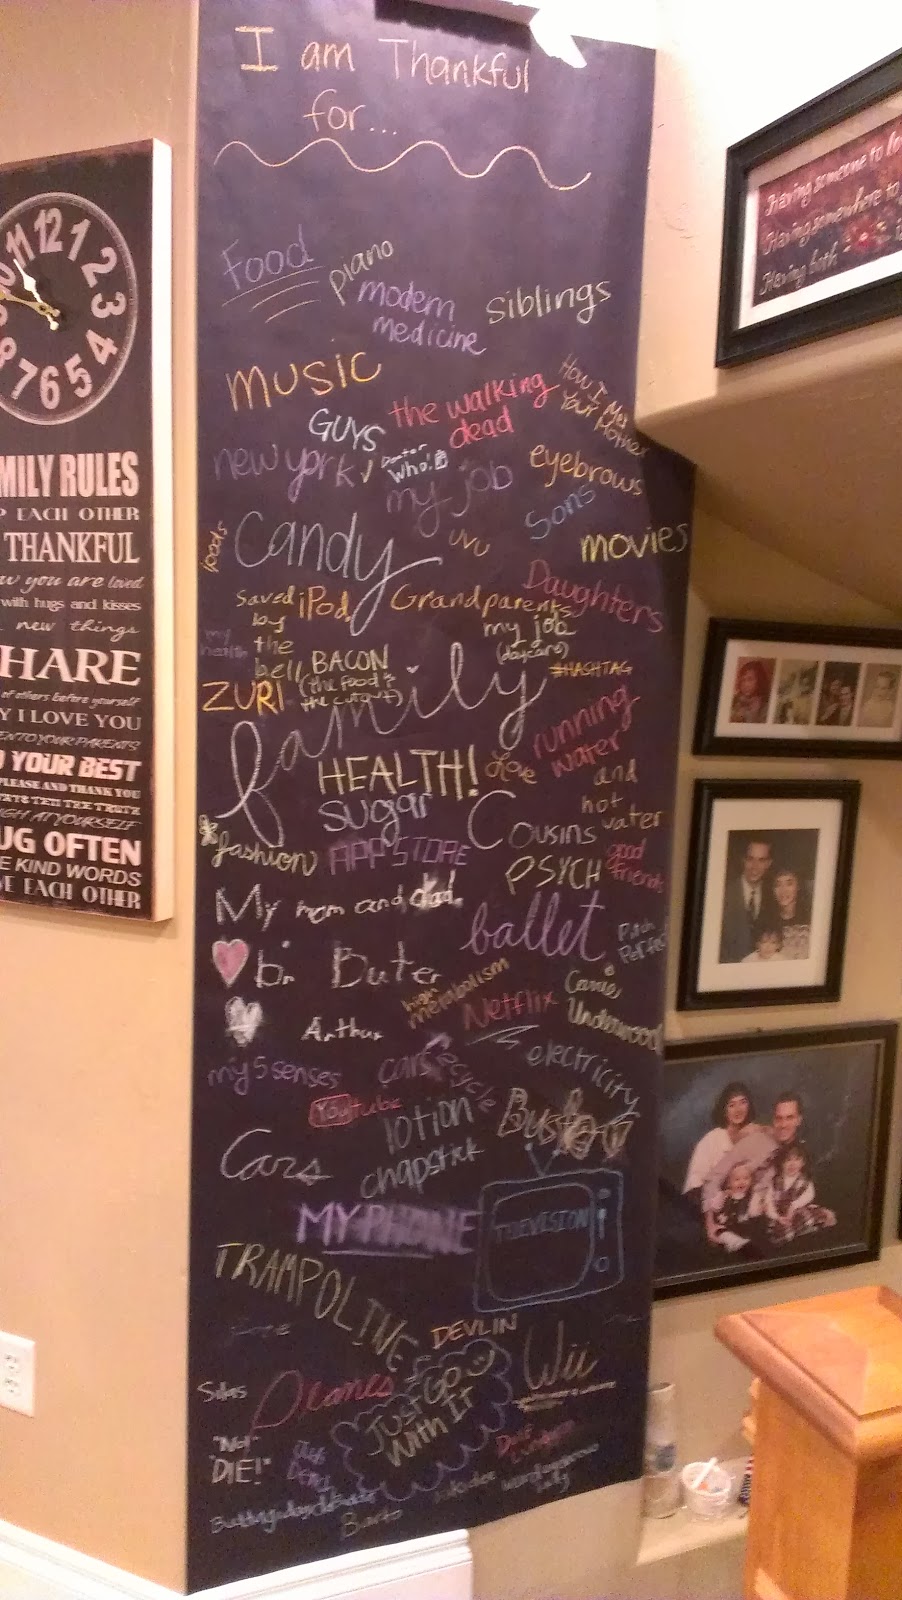 I am Thankful
for...
Food
piano
modern
medicine
siblings
music
GUYS
the walking
dead
How I Met
Your Mother
new york
Doctor
Who!
my job
eyebrows
Sons
candy
UVU
movies
Daughters
saved
by
the
bell
iPod
Grandparents
my job
(daycare)
my
health
BACON
(the food &
the cutout)
#HASHTAG
ZURI
family
running
water
and
hot
water
HEALTH!
love
sugar
Cousins
fashion
APP STORE
PSYCH
good
friends
My mom and dad.
ballet
Pitch
Perfect
br. Buter
high
metabolism
Netflix
Carrie
Underwood
Arthur
electricity
my 5 senses
cars
recycle
YouTube
lotion
chapstick
Cars
MY PHONE
TELEVISION
TRAMPOLINE
DEVLIN
Wii
Silas
Just Go
With It
"No!"
DIE!"
Barto
12
1
2
3
4
5
6
7
8
11
MILY RULES
EACH OTHER
THANKFUL
you are loved
with hugs and kisses
new things
HARE
of others before yourself
I LOVE YOU
TO YOUR PARENTS
YOUR BEST
PLEASE AND THANK YOU
TELL THE TRUTH
AT YOURSELF
UG OFTEN
KIND WORDS
EACH OTHER
Having someone to lo
Having somewhere to
Having both